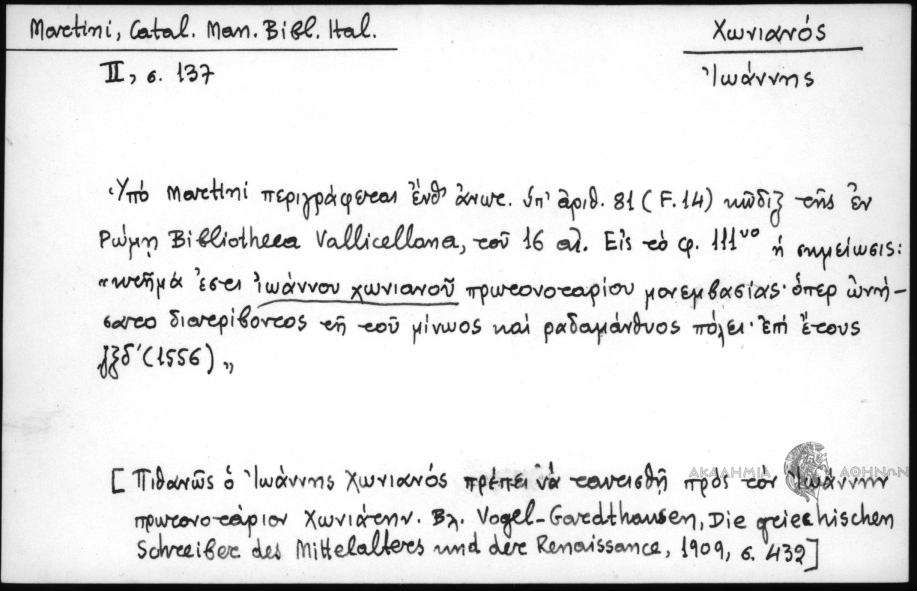 Martini, Catal. Man. Bibl. Ital.
II, σ. 137
Χωνιανός
Ἰωάννης
Ὑπό Martini περιγράφεται ἔνθ' ἀνωτ. ὑπ' ἀριθ. 81 (F.14) κῶδιξ τῆς ἐν
Ρώμῃ Bibliotheca Vallicellana, τοῦ 16 αἰ. Εἰς τό φ. 111νο ἡ σημείωσις:
«κτῆμά ἐστι ἰωάννου χωνιανοῦ πρωτονοταρίου μονεμβασίας· ὅπερ ὠνή-
σατο διατρίβοντος τῇ τοῦ μίνωος καί ραδαμάνθυος πόλει· ἐπί ἔτους
͵ζξδ' (1556)»
[Πιθανῶς ὁ Ἰωάννης Χωνιανός πρέπει νά ταυτισθῇ πρός τόν Ἰωάννην
πρωτονοτάριον Χωνιάτην. Βλ. Vogel-Gardthausen, Die griechischen
Schreiber des Mittelalters und der Renaissance, 1909, σ. 432]
ΑΚΑΔΗΜΙΑ ΑΘΗΝΩΝ